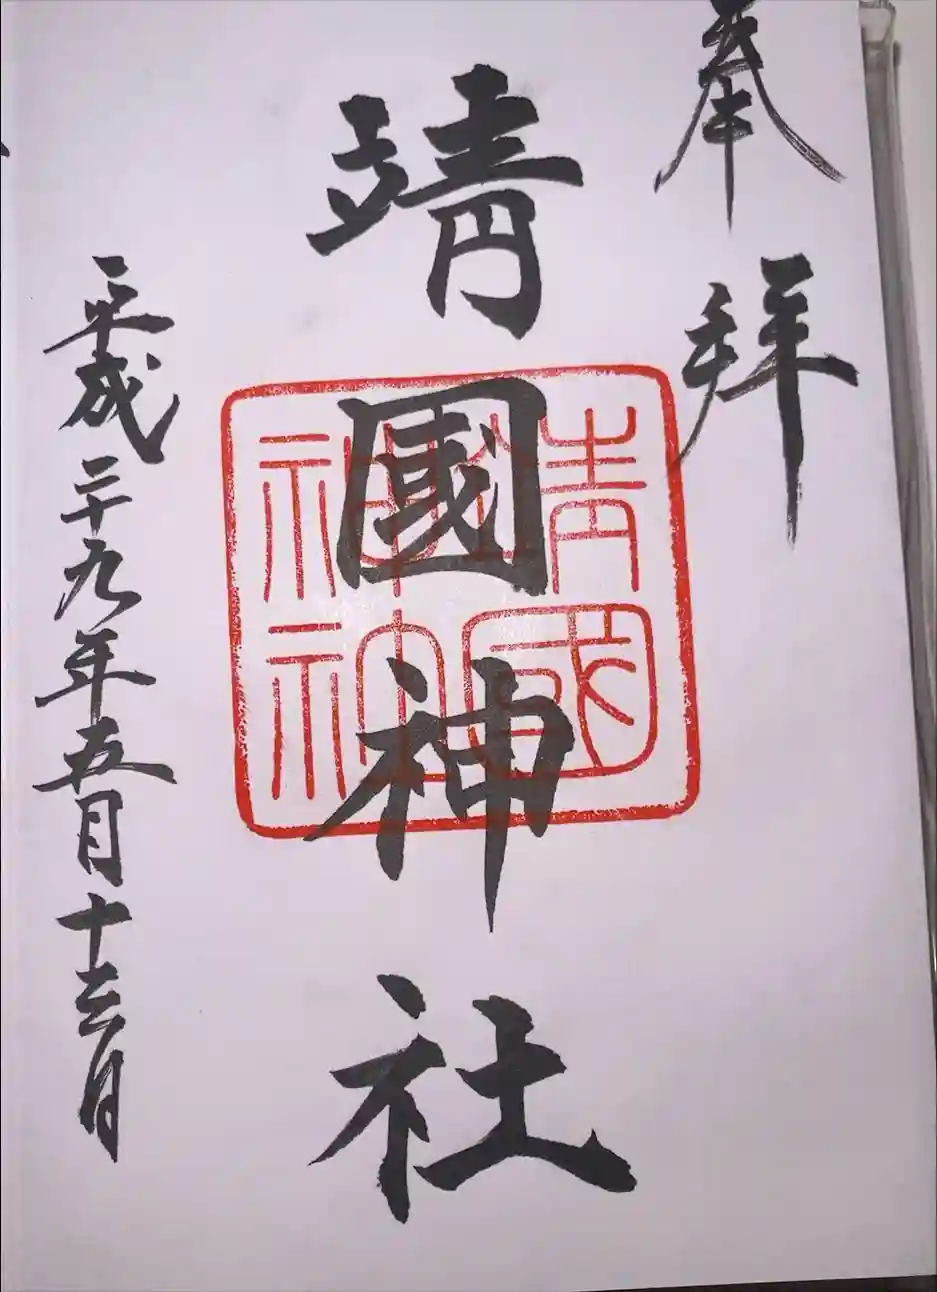 奉拜
靖國神社
靖國
神社
平成二十九年五月十三日